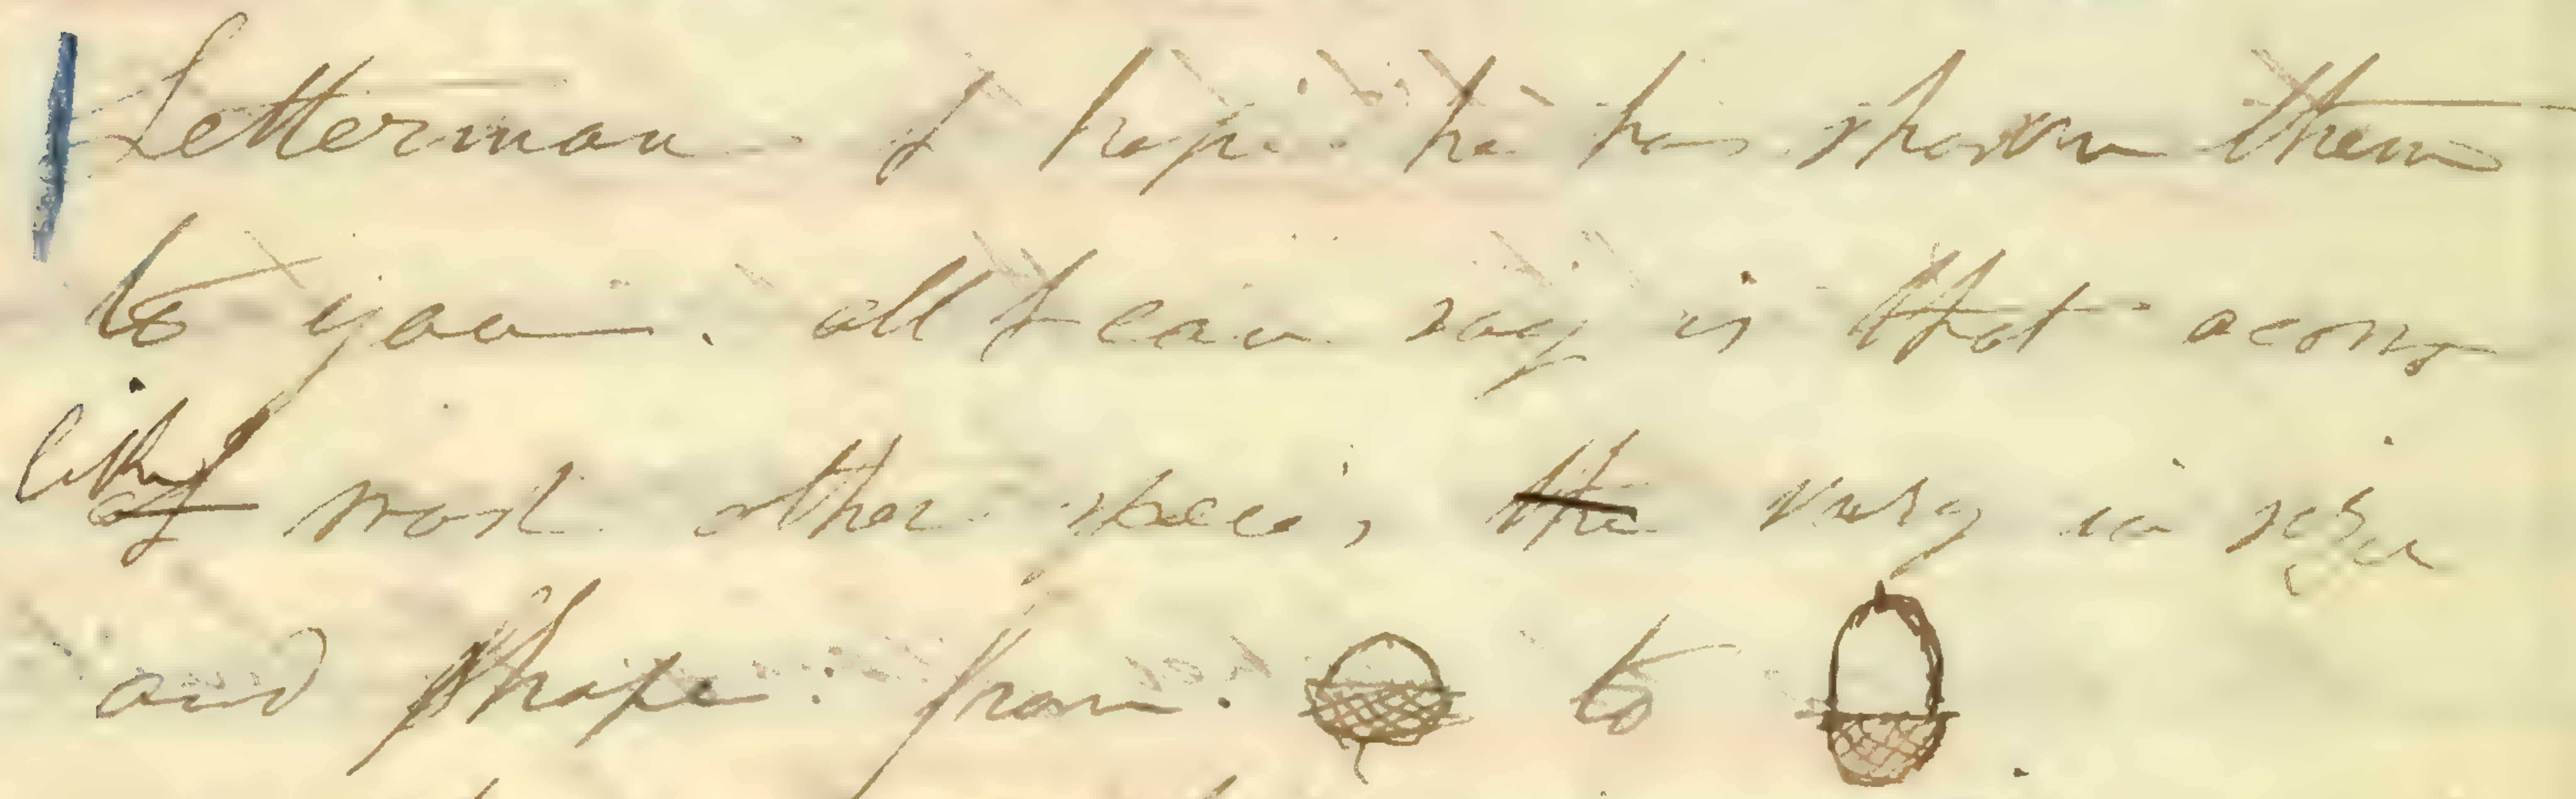 Letterman - I hope he has shown them
to you. all I can say is that acorns
like of most other species, the vary in size
and shape from to